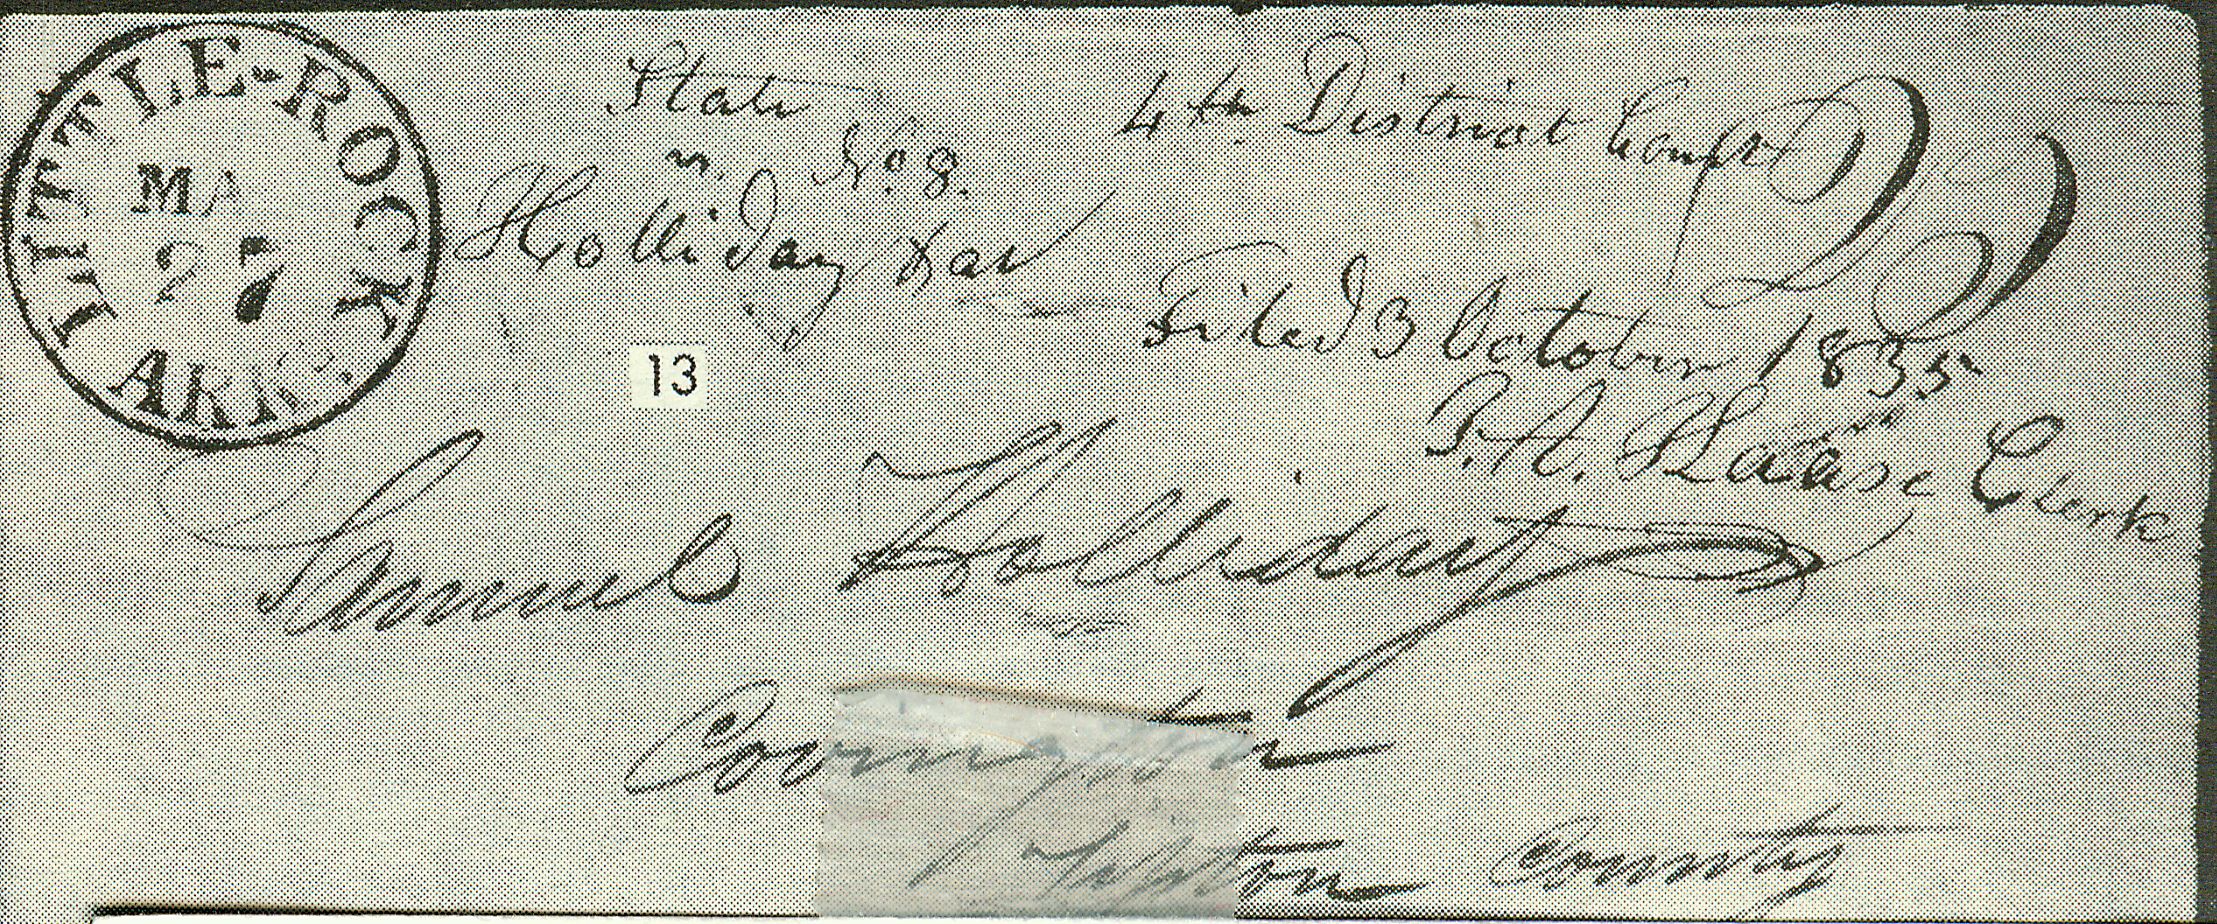 LITTLE-ROCK
MA
27
ARK
State
vs. No. 8.
Holliday
4th District Comp
Filed 3 October 1835
P. A. Clerk
13
Samuel Holliday
Covington
Tipton County